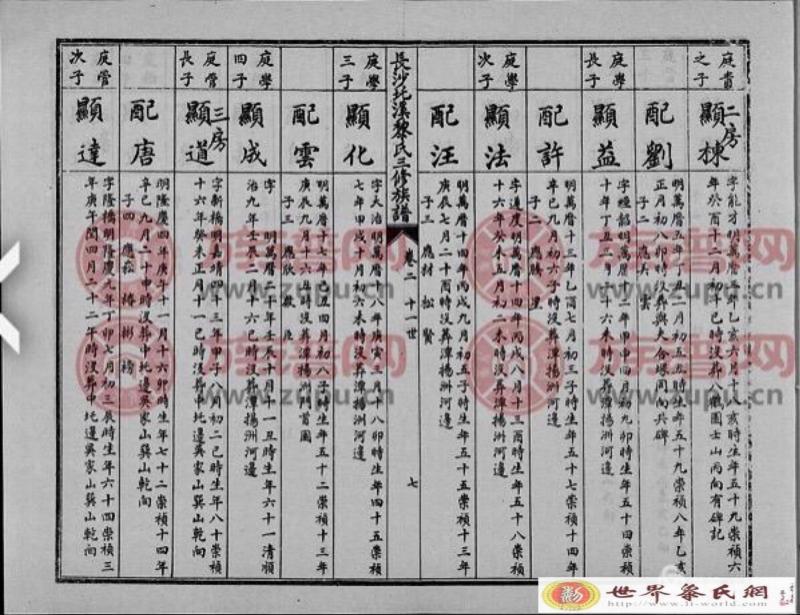 庭貴之子
二房
顯棟
字能才明萬曆三年乙亥六月十八亥時生年五十九崇禎六年癸酉十二月初十巳時沒葬八畝園土山丙向有碑記
配劉
明萬曆五年丁丑二月初五五時生年五十九崇禎八年乙亥正月初八卯時沒葬與夫合塚同向共碑
子二 應天 雲
庭學長子
顯益
十年丁丑二月十六未時沒葬潭揚洲河邊
配許
明萬曆十三年乙酉七月初三子時生年五十七崇禎十四年辛巳九月初六子時沒葬潭揚洲河邊
子二 應騰 星
庭學次子
顯法
字道度明萬曆十四年丙戌八月十三酉時生年五十八崇禎十六年癸未五月初二未時沒葬潭揚洲河邊
配汪
明萬曆十四年丙戌九月初五子時生年五十五崇禎十三年庚辰七月二十酉時沒葬潭揚洲河邊
子三 應材 松 賢
長沙㘰溪黎氏三修族譜
卷二 十一世
七
庭學三子
顯化
字大治明萬曆十八年庚寅三月十八卯時生年四十五崇禎七年甲戌十月初六未時沒葬潭揚洲河邊
配雲
明萬曆十七年己丑四月初八子時生年五十二崇禎十三年庚辰九月十六丑時沒葬潭揚洲河邊
子三 應欣
庭學四子
顯成
字 明萬曆二十年壬辰十月十一丑時生年六十一清順治九年壬辰二月二十六巳時沒葬潭揚洲
庭管長子
三房
顯道
字新橋明嘉靖四十三年甲子八月初二巳時生年八十崇禎十六年癸未正月十一巳時沒葬中㘰邊吳家山巽山乾向
配唐
明隆慶四年庚午十一月十六卯時生年七十二崇禎十四年辛巳九月二十申時沒葬中㘰邊吳家山巽山乾向
子四 應崧 椿 彬 榜
庭管次子
顯達
字隆橋明隆慶元年丁卯七月初三辰時生年六十四崇禎三年庚午閏四月二十二午時沒葬中㘰邊吳家山巽山乾向
族譜网
www.zupu.cn
族譜网
www.zupu.cn
世界黎氏網
http://www.li-world.com